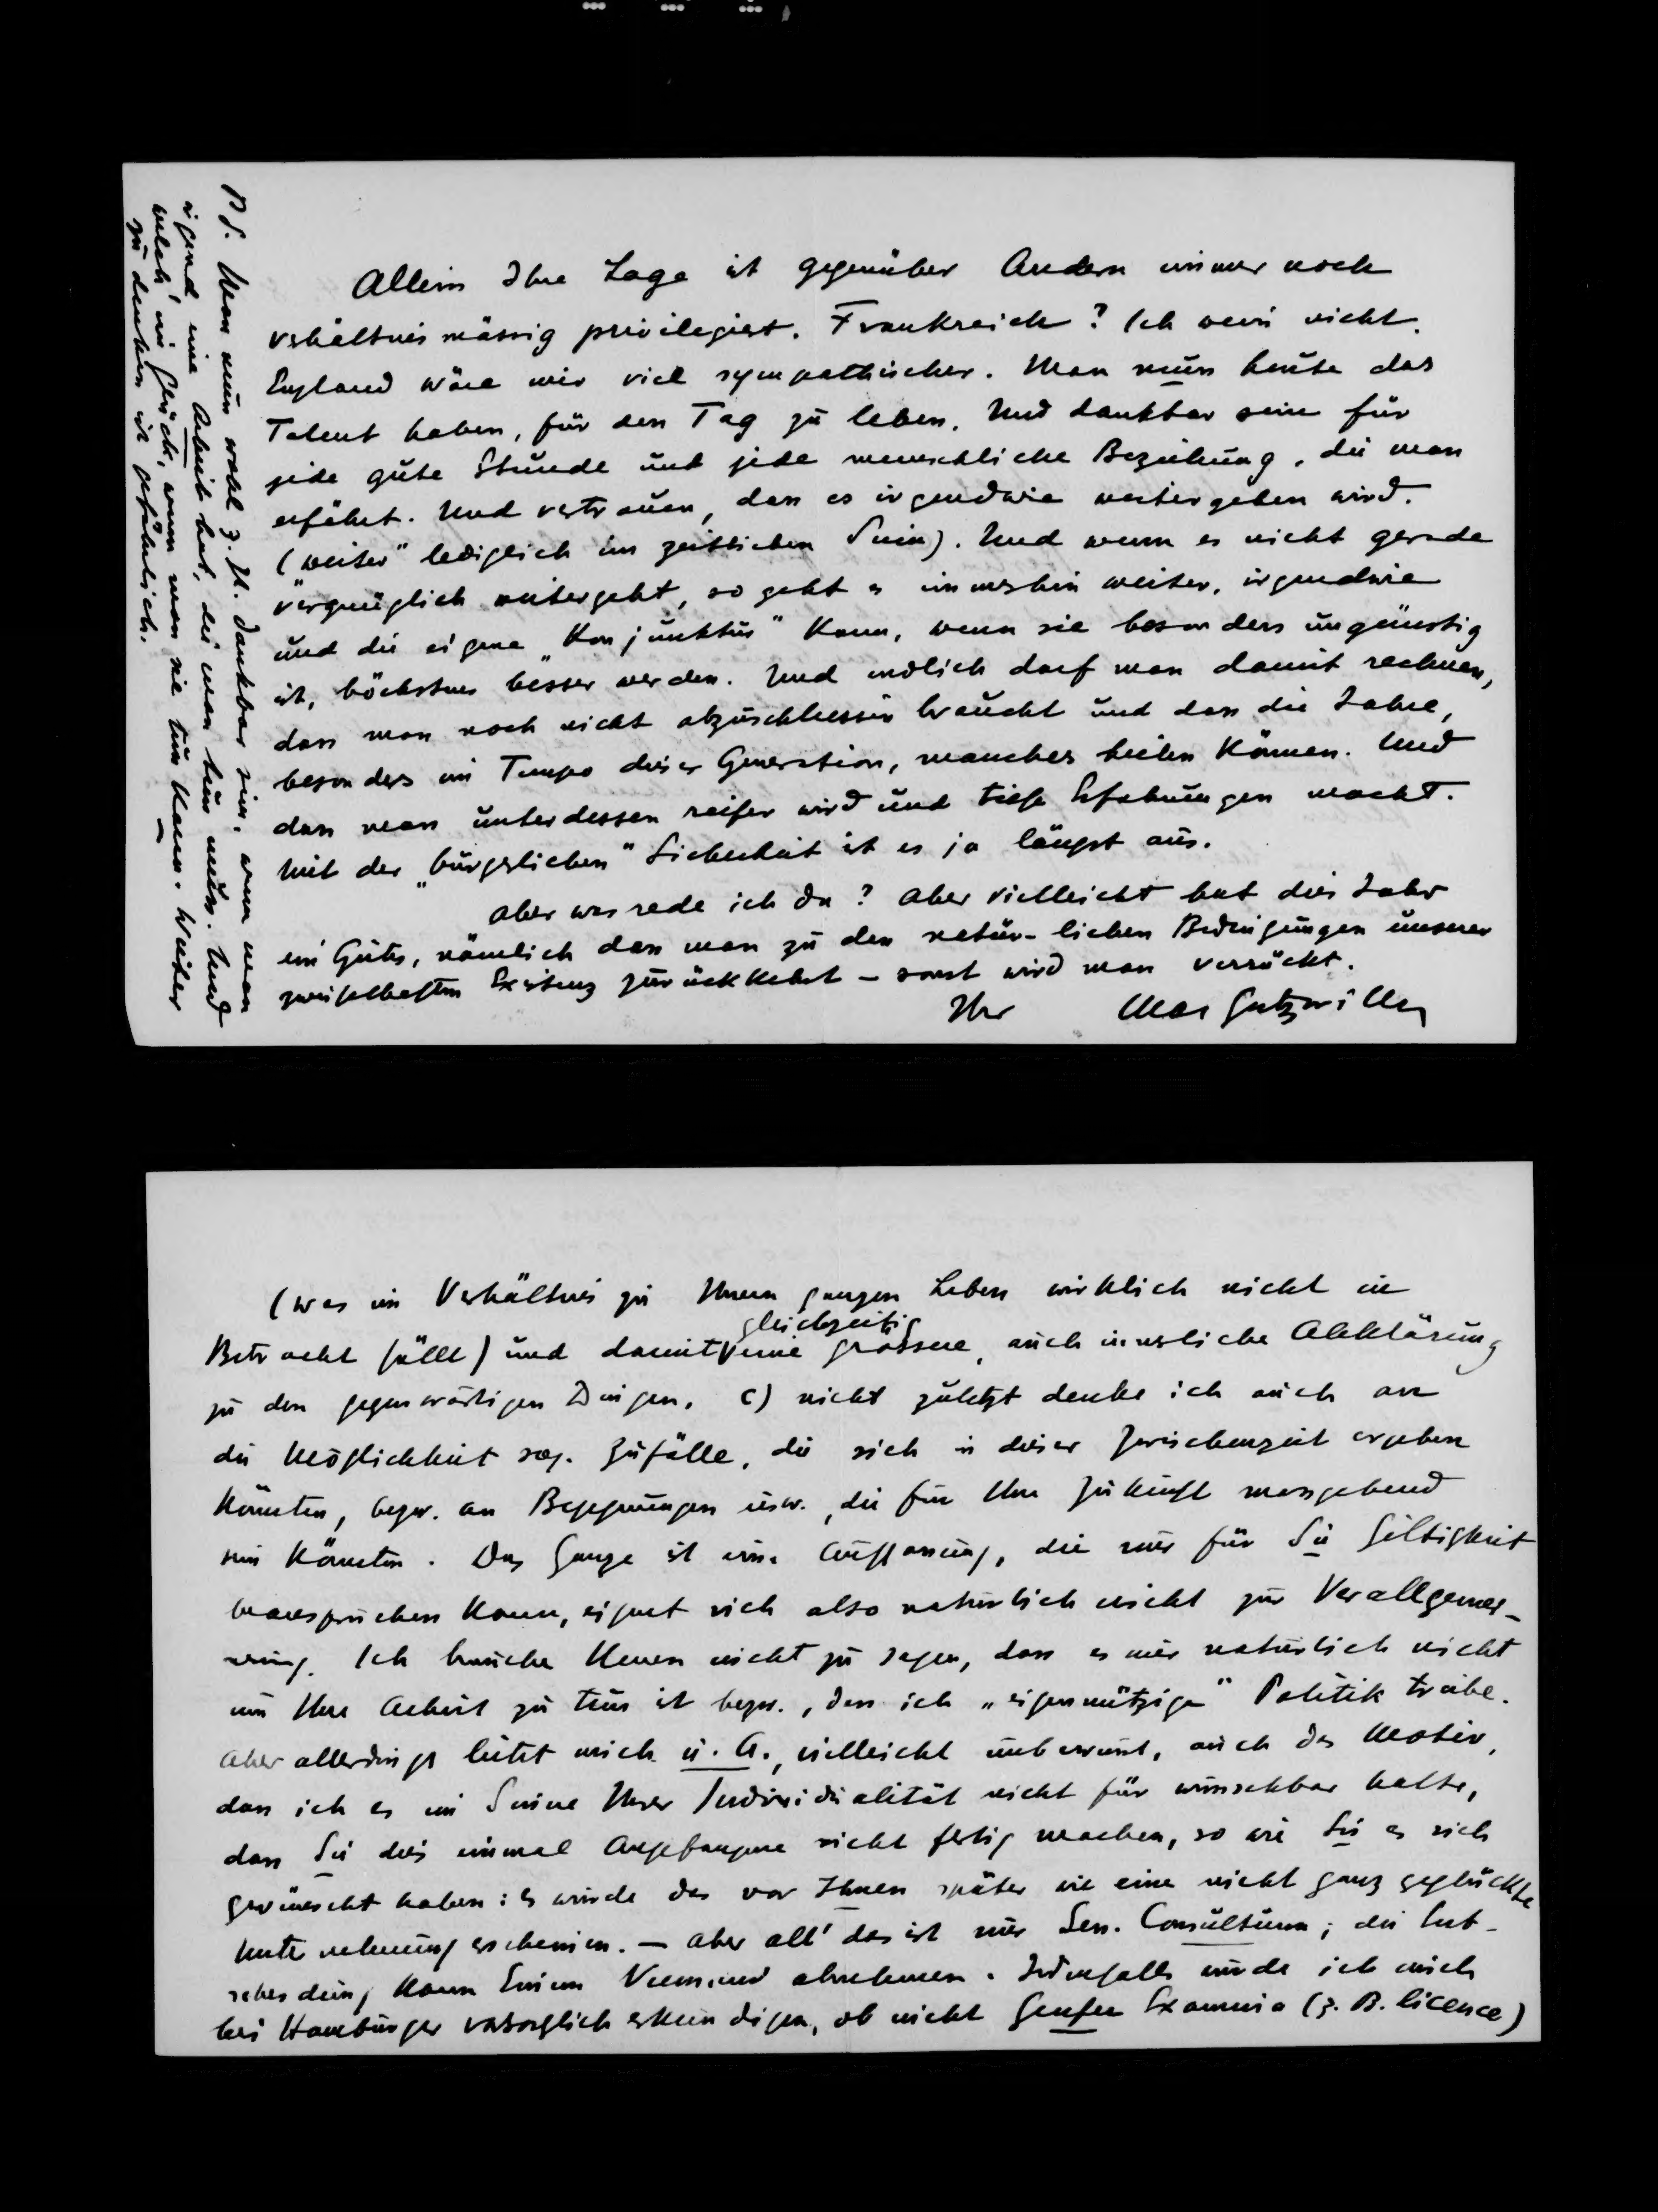 Allein Ihre Lage ist gegenüber Andern immer noch
verhältnismässig privilegiert. Frankreich? Ich weiss nicht.
England wäre mir viel sympathischer. Man muss heute das
Talent haben, für den Tag zu leben. Und dankbar sein für
jede gute Stunde und jede menschliche Beziehung, die man
erfährt. Und vertrauen, dass es irgendwie weitergehen wird.
("weiter" lediglich im zeitlichen Sinn). Und wenn es nicht gerade
vergnüglich weitergeht, so geht es immerhin weiter, irgendwie
und die eigene „Konjunktur" kann, wenn sie besonders ungünstig
ist, höchstens besser werden. Und endlich darf man damit rechnen,
dass man noch nicht abzuschliessen braucht und dass die Jahre,
besonders im Tempo dieser Generation, manches heilen können. Und
dass man unterdessen reifer wird und tiefe Erfahrungen macht.
Mit der „bürgerlichen" Sicherheit ist es ja längst aus.
Aber was rede ich da? Aber vielleicht hat dies Jahr
ein Gutes, nämlich dass man zu den natür-lichen Bedingungen unserer
zweifelhaften Existenz zurückkehrt – sonst wird man verrückt.
Ihr Max Gutzwiller
PS. Man muss wohl z. Zt. dankbar sein, wenn man
irgend eine Arbeit hat, die man tun muss. Und
welch' ein Glück, wenn man sie tun kann. Weiter
zu denken ist gefährlich.
(was im Verhältnis zu Ihrem ganzen Leben wirklich nicht in
gleichzeitig
Betracht fällt) und damit eine grössere, auch innerliche Abklärung
zu den gegenwärtigen Dingen. c) nicht zuletzt denke ich auch an
die Möglichkeit sog. Zufälle, die sich in dieser Zwischenzeit ergeben
könnten, bezw. an Begegnungen usw., die für Ihre Zukunft massgebend
sein könnten. Das Ganze ist eine Auffassung, die nur für Sie Giltigkeit
beanspruchen kann, eignet sich also natürlich nicht zur Verallgemei-
nerung. Ich brauche Ihnen nicht zu sagen, dass es mir natürlich nicht
um Ihre Arbeit zu tun ist bezw., dass ich „eigennützige" Politik triebe.
Aber allerdings leitet mich u. A., vielleicht unbewusst, auch das Motiv,
dass ich es im Sinne Ihrer Individualität nicht für wünschbar halte,
dass Sie dies einmal Angefangene nicht fertig machen, so wie Sie es sich
gewünscht haben: es würde das vor Ihnen später wie eine nicht ganz geglückte
Unternehmung erscheinen. – Aber all' das ist nur Sen. Consultum; die Ent-
scheidung kann Einem Niemand abnehmen. Jedenfalls würde ich mich
bei Hamburger vorsorglich erkundigen, ob nicht Genfer Examina (z. B. licence)